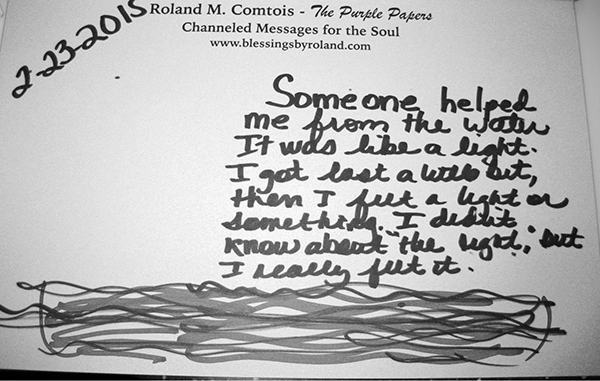 2-23-2015
Roland M. Comtois - The Purple Papers
Channeled Messages for the Soul
www.blessingsbyroland.com
Someone helped
me from the water
It was like a light.
I got lost a little bit,
then I felt a light or
something. I didn't
know about "the light," but
I really felt it.